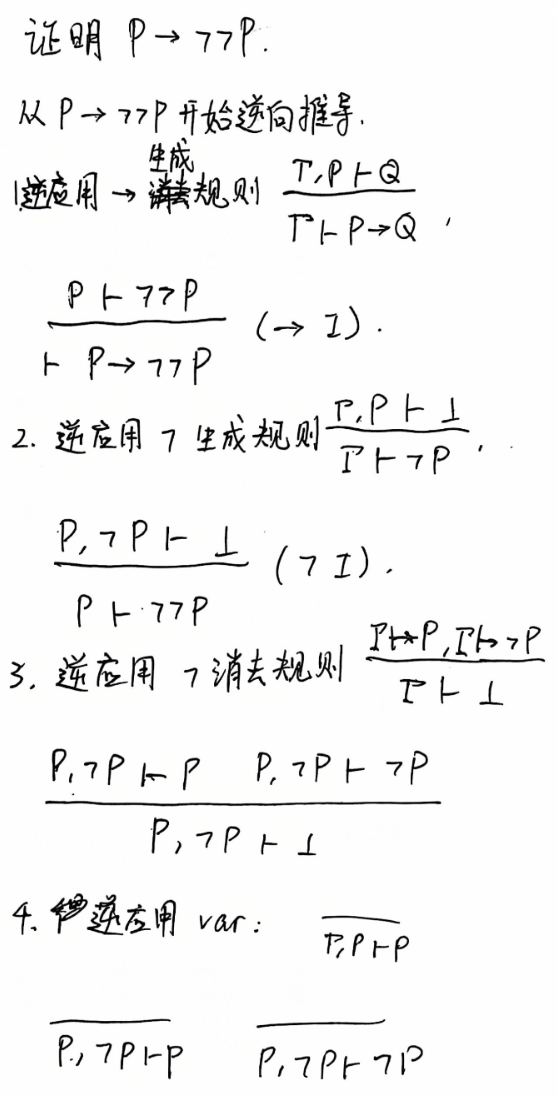 证明 P → ¬¬P.
从 P → ¬¬P 开始逆向推导.
1.逆应用 → 生成规则 Γ,P ⊢ Q
Γ ⊢ P→Q ,
P ⊢ ¬¬P
⊢ P→ ¬¬P (→ I).
2. 逆应用 ¬ 生成规则 Γ,P ⊢ ⊥
Γ ⊢ ¬P .
P, ¬P ⊢ ⊥
P ⊢ ¬¬P (¬ I).
3. 逆应用 ¬消去规则 Γ⊢P, Γ⊢¬P
Γ ⊢ ⊥
P, ¬P ⊢ P P, ¬P ⊢ ¬P
P, ¬P ⊢ ⊥
4. 逆应用 var:
Γ,P⊢P
P, ¬P⊢P P, ¬P⊢ ¬P